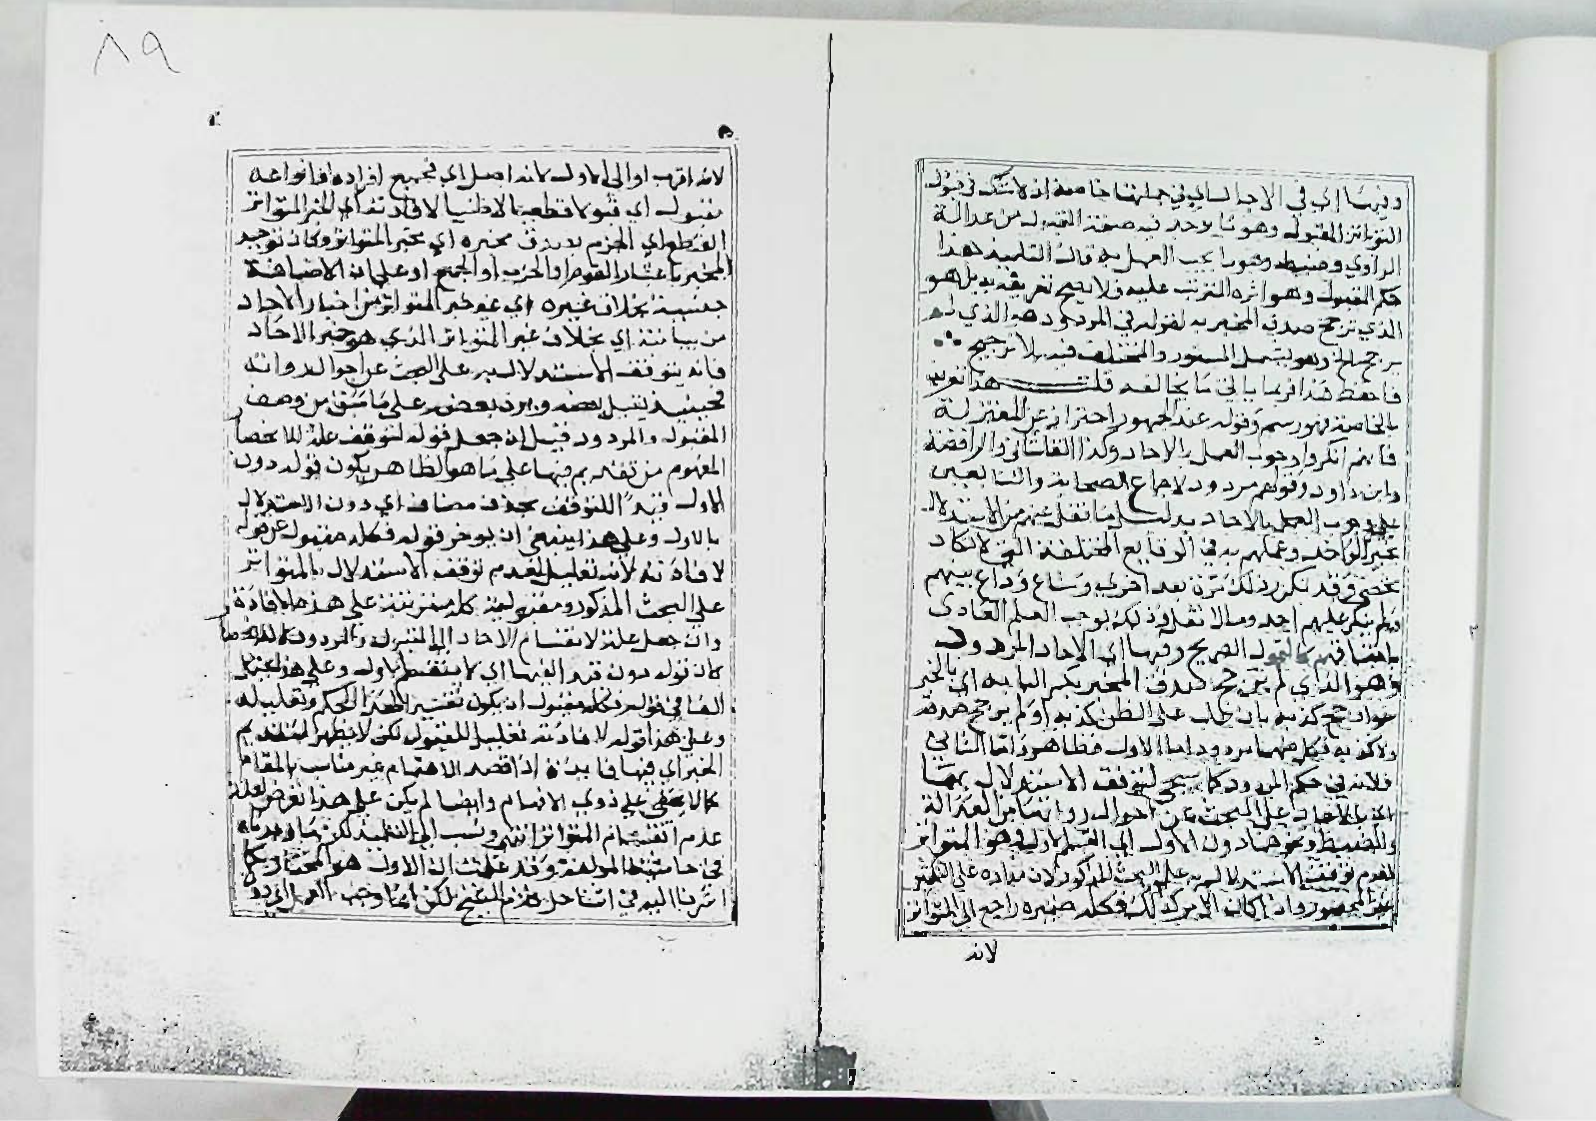 وفيها اي في الاحاد اي في جملتها خاصة اذ لا شك في قبول
المتواتر المقبول وهو ما يوجد فيه صفة القبول من عدالة
الراوي وضبطه وهو ما يجب العمل به قال التلميذ هذا
حكم المقبول وهو اثره المترتب عليه فلا يصح تعريفه به بل هو
الذي ترجح صدق المخبر به لقوله في المردود هو الذي لم
يرجح الخ وهو يشمل المستور والمختلف فيه بلا ترجيح
فاحفظ هذا فربما ياتي ما يخالفه قلت هذا تعريف
بالخاصة فهو رسم وقوله عند الجمهور احتراز عن المعتزلة
فانهم انكروا وجوب العمل بالاحاد وكذا القاشاني والرافضة
وابن داود وقولهم مردود لاجماع الصحابة والتابعين
على وجوب العمل بالاحاد بدليل ما نقل عنهم من الاستدلال
بخبر الواحد وعملهم به في الوقايع المختلفة التي لا تكاد
تحصى وقد تكرر ذلك مرة بعد اخرى وشاع وذاع بينهم
ولم ينكر عليهم احد والا لنقل وذلك يوجب العلم العادي
باتفاقهم كالقول الصريح وفيها اي الاحاد المردود
وهو الذي لم يترجح صدق المخبر بكسر الباء به اي بالخبر
سواء رجح كذبه بان غلب على الظن كذبه او لم يرجح صدقه
ولا كذبه فكل منهما مردود اما الاول فظاهر واما الثاني
فلانه في حكم المردود كما سيجيء لتوقف الاستدلال بهما
اي بالاحاد على البحث عن احوال رواتها من العدالة
والضبط ونحوهما دون الاول اي القسم الاول وهو المتواتر
لعدم توقف الاستدلال به على البحث المذكور لان مداره على الكثير
غير المحصور واذا كان الامر كذلك فكله ضميره راجع الى المتواتر
لانه
٨٩
لانه اقرب او الى الاول لانه اصل اي فجميع افراده وانواعه
مقبول اي قبولا قطعيا لا ظنيا لافادته اي الخبر المتواتر
القطع اي الجزم بصدق مخبره اي مخبر المتواتر وكان توحيد
المخبر باعتبار القوم او الحزب او الجمع او على ان الاضافة
جنسية بخلاف غيره اي غير خبر المتواتر من اخبار الاحاد
من بيانية اي بخلاف غير المتواتر الذي هو خبر الاحاد
فانه يتوقف الاستدلال به على البحث عن احوال رواته
فحينئذ يقبل بعضه ويرد بعضه على ما سبق من وصف
المقبول والمردود قيل ان جعل قوله لتوقف علة للانحصار
المفهوم من تقديم فيها على ما هو الظاهر يكون قوله دون
الاول قيدا للتوقف بحذف مضاف اي دون الاستدلال
بالاول وعلى هذا ينبغي ان يوخر قوله فكله مقبول عن قوله
لافادته لانه تعليل لعدم توقف الاستدلال بالمتواتر
على البحث المذكور ومقبولية كله متفرعة على هذه الافادة
وان جعل علة لانقسام الاحاد الى المقبول والمردود
كان قوله دون قيد الفيها اي لا ينقسم الاول وعلى هذا
الفا في قوله فكله مقبول ان يكون تفسيرا لهذا الحكم وتعليله
وعلى هذا قوله لافادته تعليل للمقبول لكن لا يظهر لتقديم
الخبر اي فيها فائدة اذ قصد الاهتمام غير مناسب بالمقام
كما لا يخفى على ذوي الافهام وايضا لم يكن على هذا تعرض لعلة
عدم انقسام المتواتر انتهى ونسب الى التلميذ لكن ما وجدناه
في حاشيته المولفة وقد علمت ان الاول هو المختار وكما
اشرنا اليه في اثنا حل كلام الشيخ لكن انما وجب العمل اي به